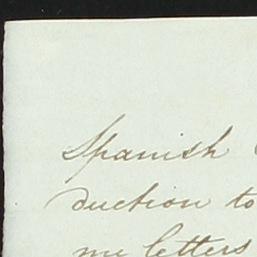 Spanish
duction to
me letters